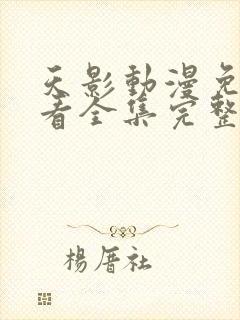 天影動漫免
看全集完整
楊厝社